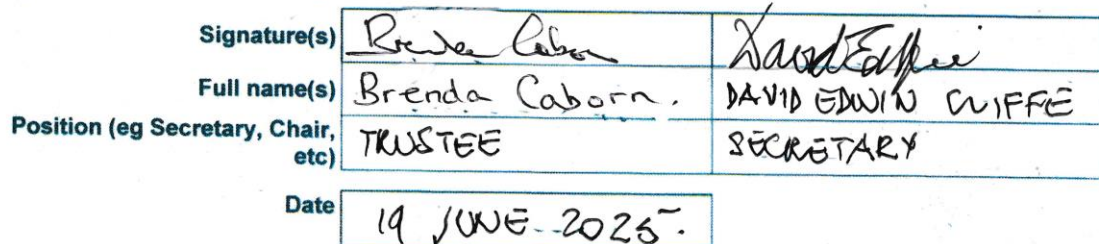 Signature(s) Brenda Caborn
Full name(s) Brenda Caborn. DAVID EDWIN
Position (eg Secretary, Chair, etc) TRUSTEE SECRETARY
Date 19 JUNE 2025.